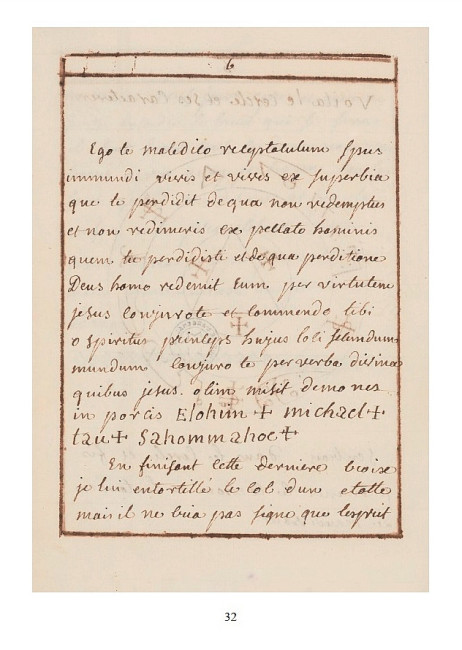 6
Ego te maledico receptatulum spus
immundi vivis et vives ex superbia
que te perdidit de qua non redemptus
et non redimeris ex pellato hominis
quem tu perdidisti et de qua perditione
Deus homo redemit Eum per virtutem
jesus conjurote et Commendo tibi
o spiritus princeps hujus loli selundum
mundum conjuro te per verba divina
quibus jesus. olim misit demones
in porcis Elohim + michael +
tau + Sahommahoc +
En finisant cette derniere
je lui entortillé le col dun etolle
mais il ne pas signe que lesprit
32